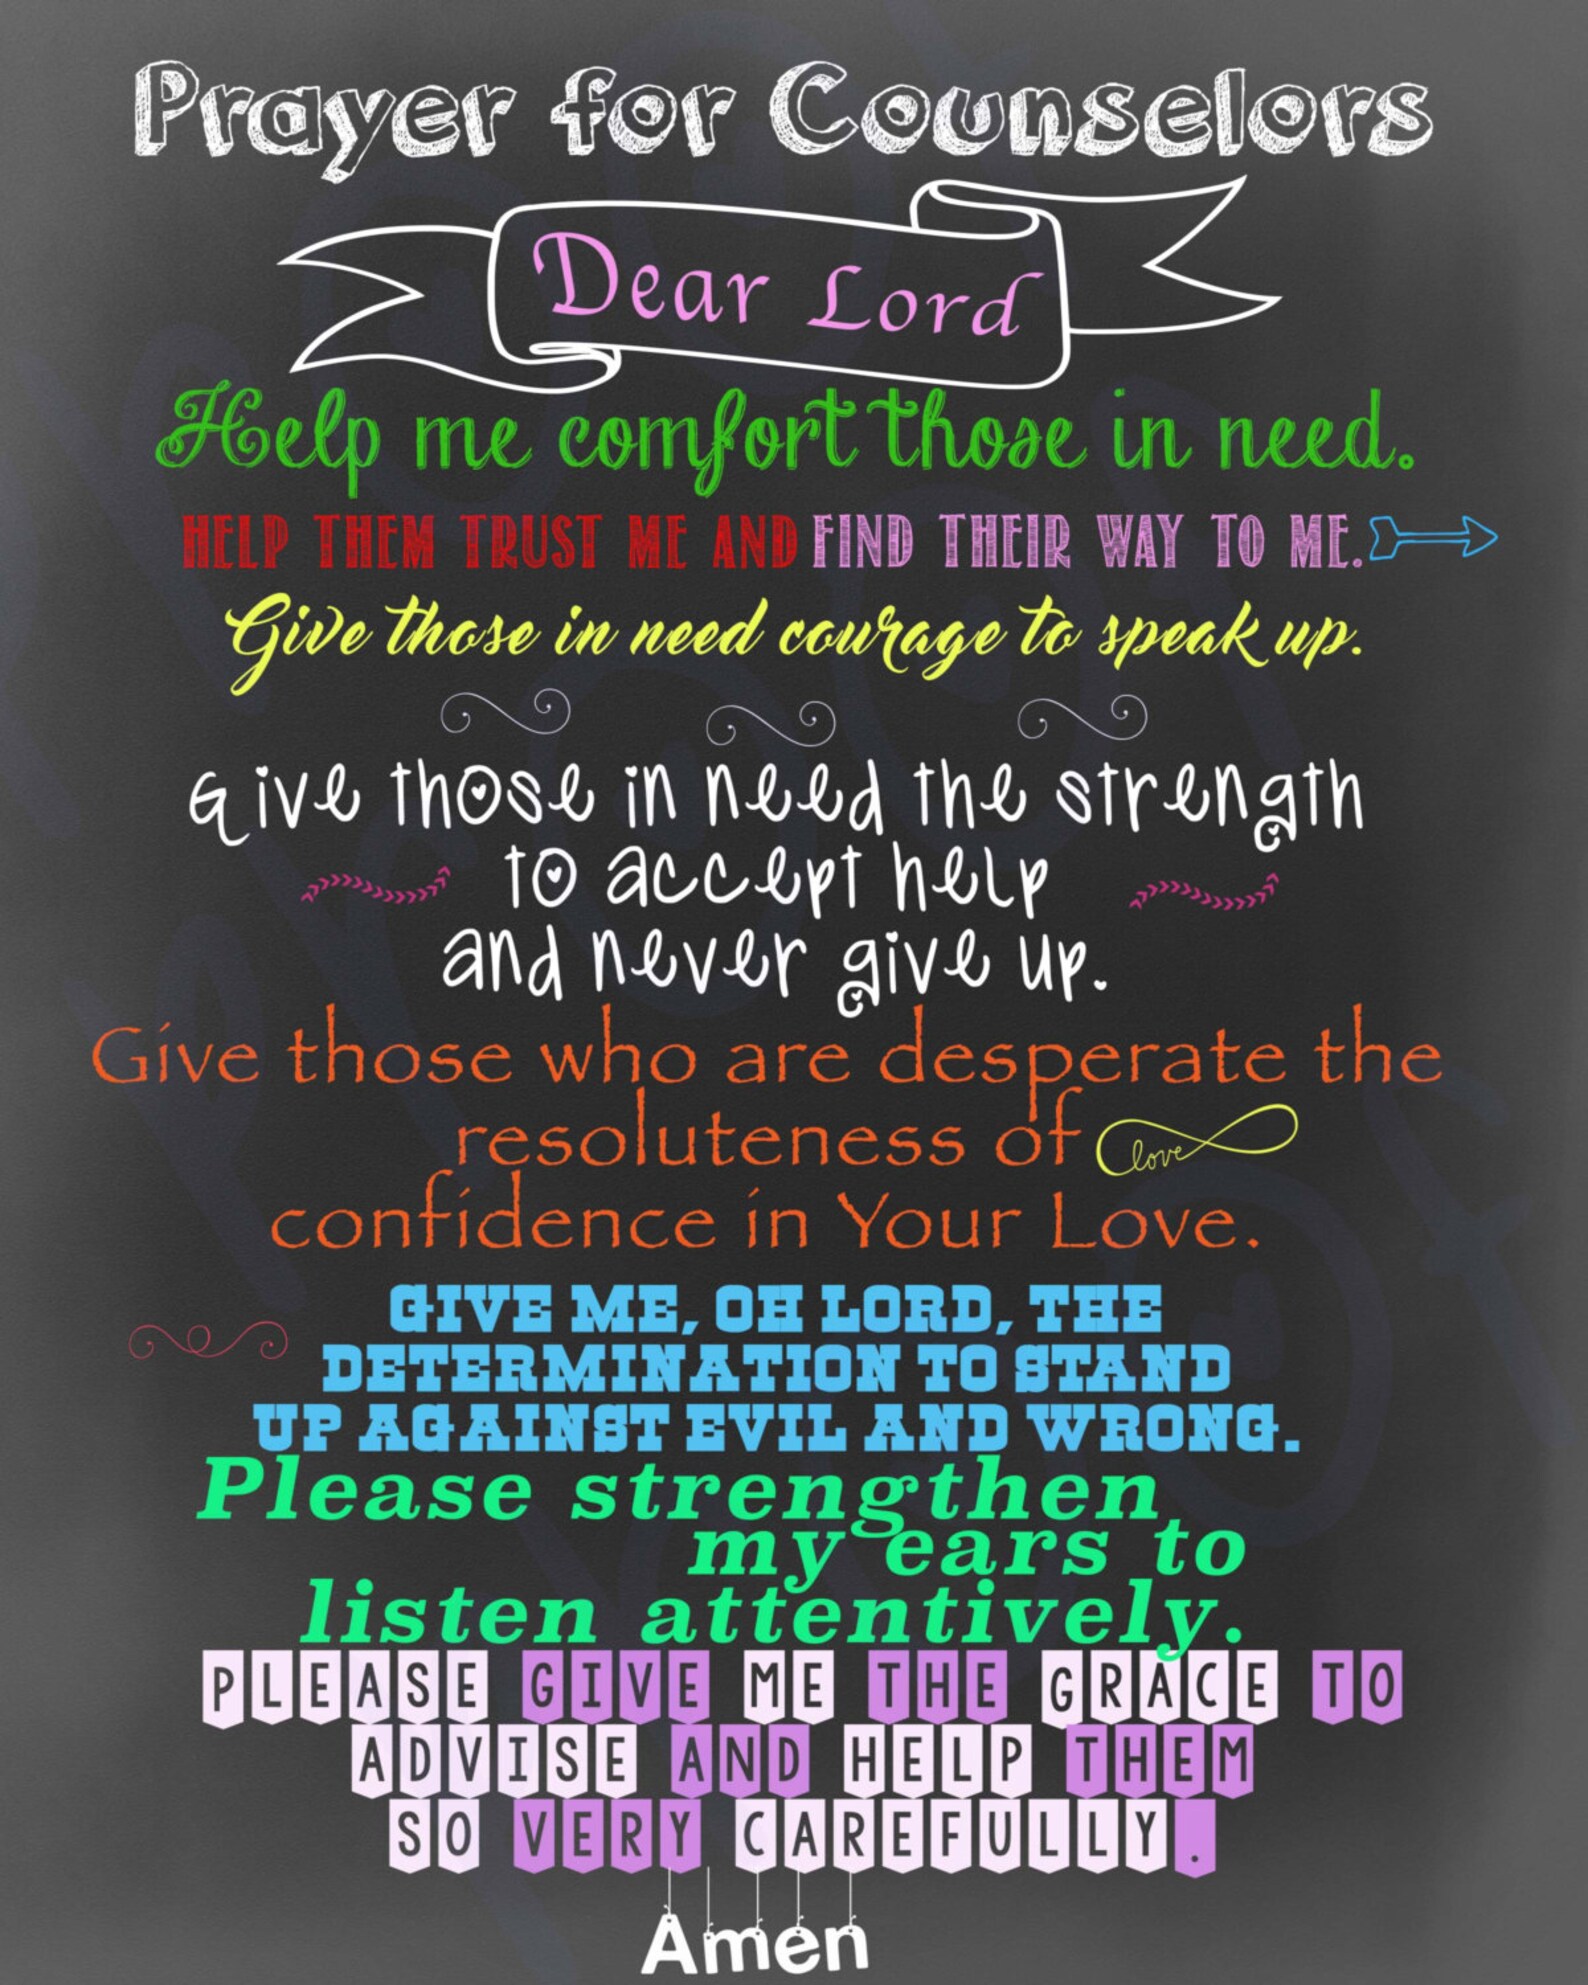 Prayer for Counselors
Dear Lord
Help me comfort those in need.
HELP THEM TRUST ME AND FIND THEIR WAY TO ME.
Give those in need courage to speak up.
Give those in need the strength
to accept help
and never give up.
Give those who are desperate the
resoluteness of love
confidence in Your Love.
GIVE ME, OH LORD, THE
DETERMINATION TO STAND
UP AGAINST EVIL AND WRONG.
Please strengthen
my ears to
listen attentively.
PLEASE GIVE ME THE GRACE TO
ADVISE AND HELP THEM
SO VERY CAREFULLY.
Amen